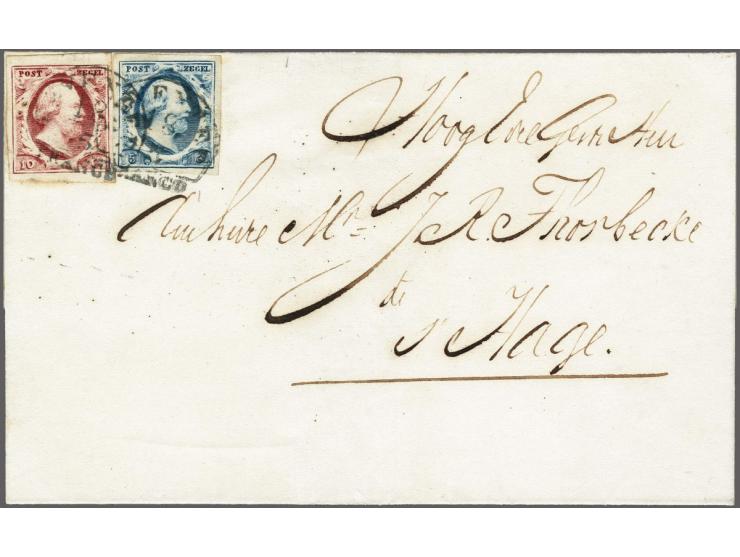 POST ZEGEL
POST ZEGEL
10
5
FRANCO
FRANCO
Hoog Edel Gestr. Heer
den heere Mr. J. R. Thorbecke
te
s' Hage.